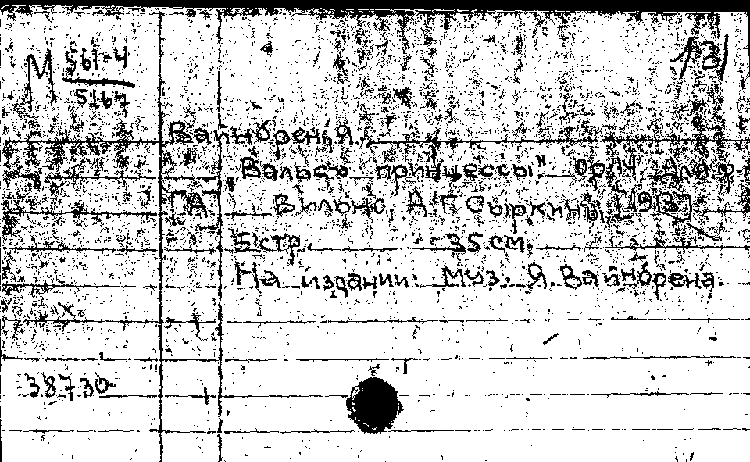 М 561-4
5167
131
Вайнбрен, Я.
"Вальсъ принцессы". Op. 14. Для ф.
[А] Вильно, А.Г. Сыркинъ, [1913]
5 стр. 35 см.
На издании: Муз. Я. Вайнбрена.
38730